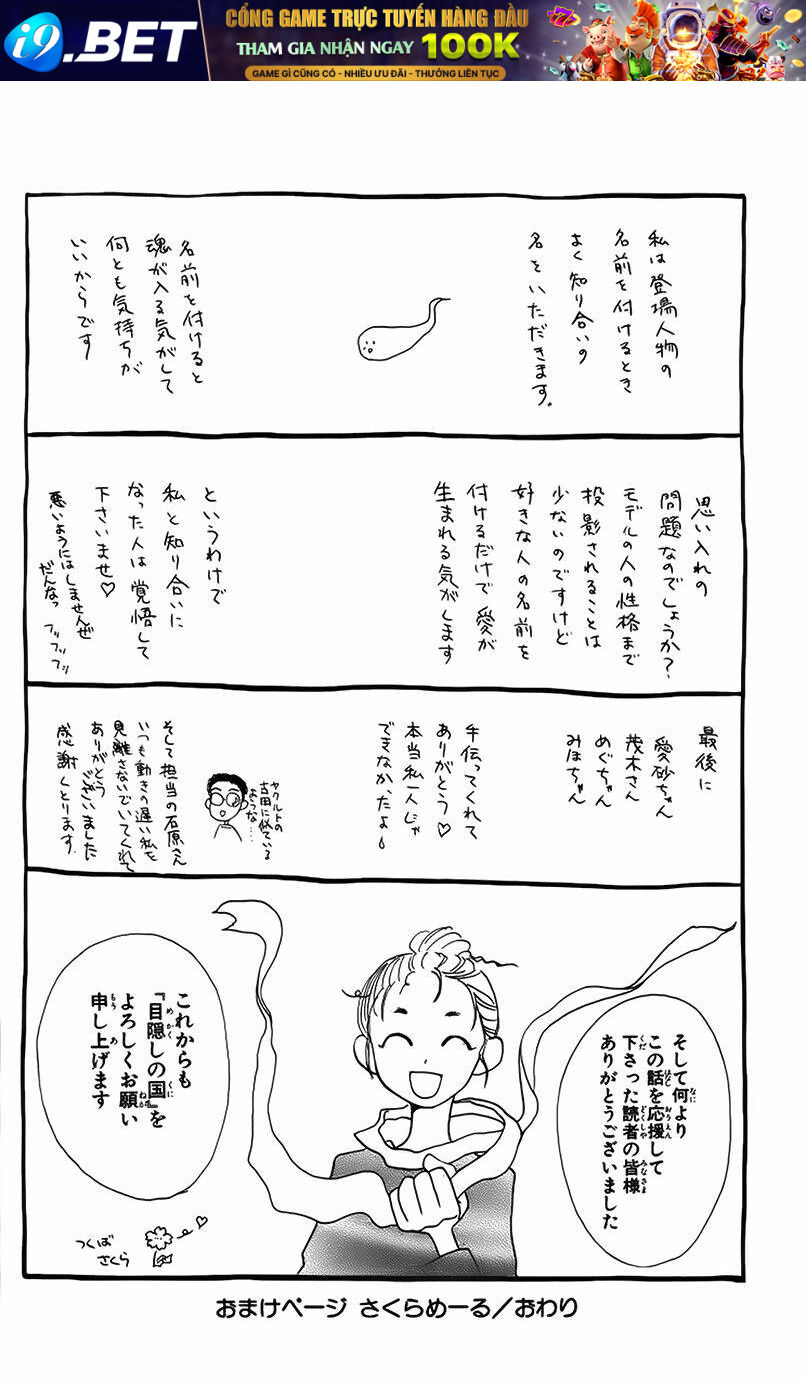 i9.BET
CỔNG GAME TRỰC TUYẾN HÀNG ĐẦU
THAM GIA NHẬN NGAY 100K
GAME GÌ CŨNG CÓ - NHIỀU ƯU ĐÃI - THƯỞNG LIÊN TỤC
私は登場人物の
名前を付けるとき
よく知り合いの
名をいただきます.
名前を付けると
魂が入る気がして
何とも気持ちが
いいからです
思い入れの
問題なのでしょうか?
モデルの人の性格まで
投影されることは
少ないのですけど
好きな人の名前を
付けるだけで愛が
生まれる気がします
というわけで
私と知り合いに
なった人は覚悟して
下さいませ♡
悪いようにはしませんぜ
だんなっ フッフッフッ
最後に
愛砂ちゃん
茂木さん
めぐちゃん
みほちゃん
手伝ってくれて
ありがとう♡
本当私一人じゃ
できなかったよ
ヤクルトの
古田に似ている
ような…
そして担当の石原さん
いつも動きの遅い私を
見離さないでいてくれて
ありがとう
ございました
感謝しとります.
そして何より
この話を応援して
下さった読者の皆様
ありがとうございました
これからも
『目隠しの国』を
よろしくお願い
申し上げます
つくば
さくら
おまけページ さくらめーる／おわり